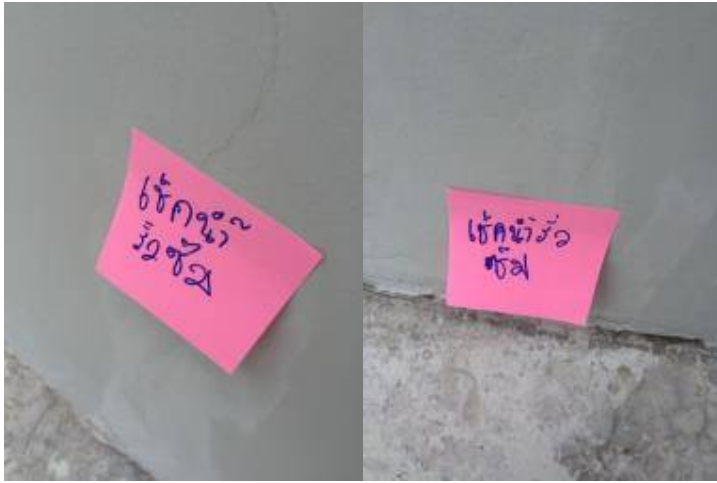 เช้คน้ำ
รั่วซึม
เช้คน้ำรั่ว
ซึม